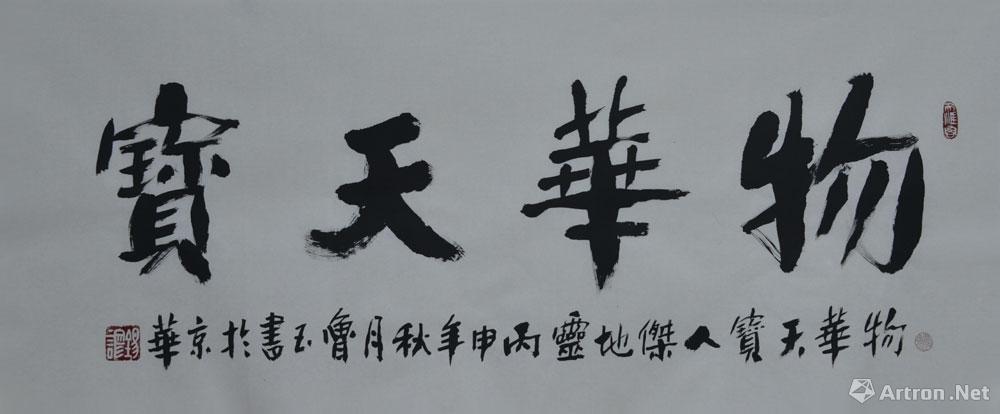 物華天寶
物華天寶人傑地靈丙申年秋月魯玉書於京華
Artron.Net